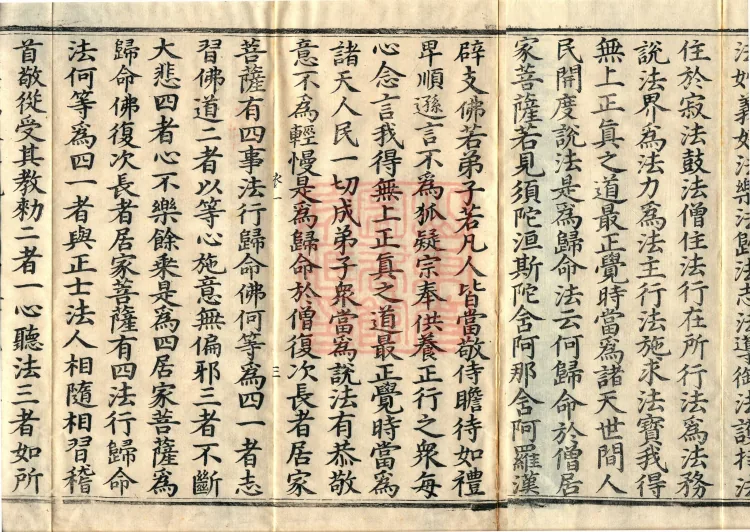 住於寂法鼓法僧住法行在所行法為法務
說法界為法力為法主行法施求法寶我得
無上正真之道最正覺時當為諸天世間人
民開度說法是為歸命法云何歸命於僧居
家菩薩若見須陀洹斯陀含阿那含阿羅漢
辟支佛若弟子若凡人皆當敬侍瞻待如禮
卑順遜言不為狐疑宗奉供養正行之衆每
心念言我得無上正真之道最正覺時當為
諸天人民一切成弟子衆當為說法有恭敬
意不為輕慢是為歸命於僧復次長者居家
三
菩薩有四事法行歸命佛何等為四一者志
習佛道二者以等心施意無偏邪三者不斷
大悲四者心不樂餘乗是為四居家菩薩為
歸命佛復次長者居家菩薩有四法行歸命
法何等為四一者與正士法人相隨相習稽
首敬從受其教勑二者一心聽法三者如所